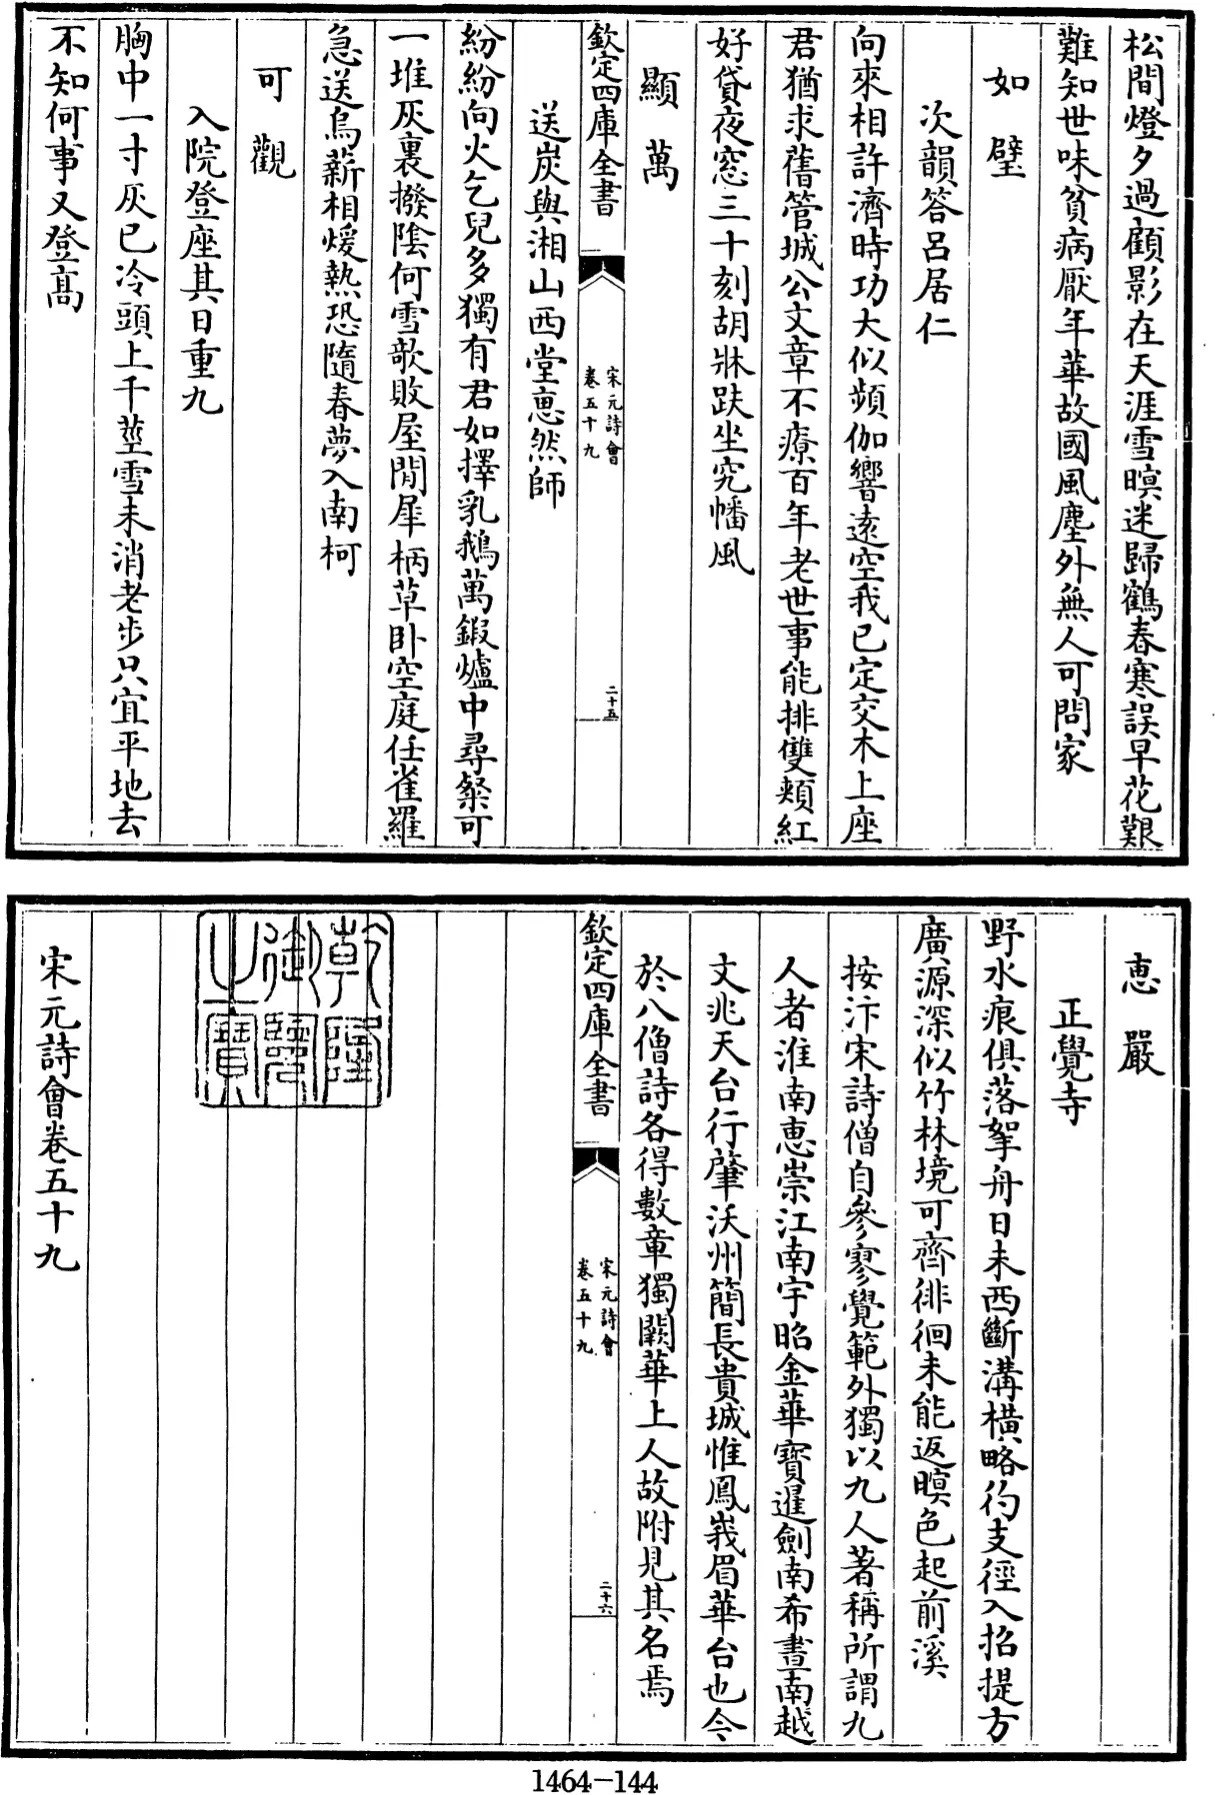 松間燈夕過顧影在天涯雪暝迷歸鶴春寒誤早花艱
難知世味貧病厭年華故國風塵外無人可問家
如璧
次韻答呂居仁
向來相許濟時功大似頻伽響遠空我已定交木上座
君猶求舊管城公文章不療百年老世事能排雙頰紅
好貸夜窓三十刻胡牀趺坐究幡風
顯萬
欽定四庫全書
宋元詩會
卷五十九
二十五
送炭與湘山西堂恵然師
紛紛向火乞兒多獨有君如擇乳鵝萬鍛爐中尋粲可
一堆灰裏撥陰何雪欹敗屋閒犀柄草卧空庭任雀羅
急送烏薪相煖熱恐隨春夢入南柯
可觀
入院登座其日重九
胸中一寸灰已冷頭上千莖雪未消老步只宜平地去
不知何事又登髙
恵嚴
正覺寺
野水痕俱落拏舟日未西斷溝橫略彴支徑入招提方
廣源深似竹林境可齊徘徊未能返暝色起前溪
按汴宋詩僧自參寥覺範外獨以九人著稱所謂九
人者淮南恵崇江南宇昭金華寶暹劍南希晝南越
文兆天台行肇沃州簡長貴城惟鳳峩眉華台也今
於八僧詩各得數章獨闕華上人故附見其名焉
欽定四庫全書
宋元詩會
卷五十九
二十六
乾隆
御覽
之寶
宋元詩會卷五十九
1464-144